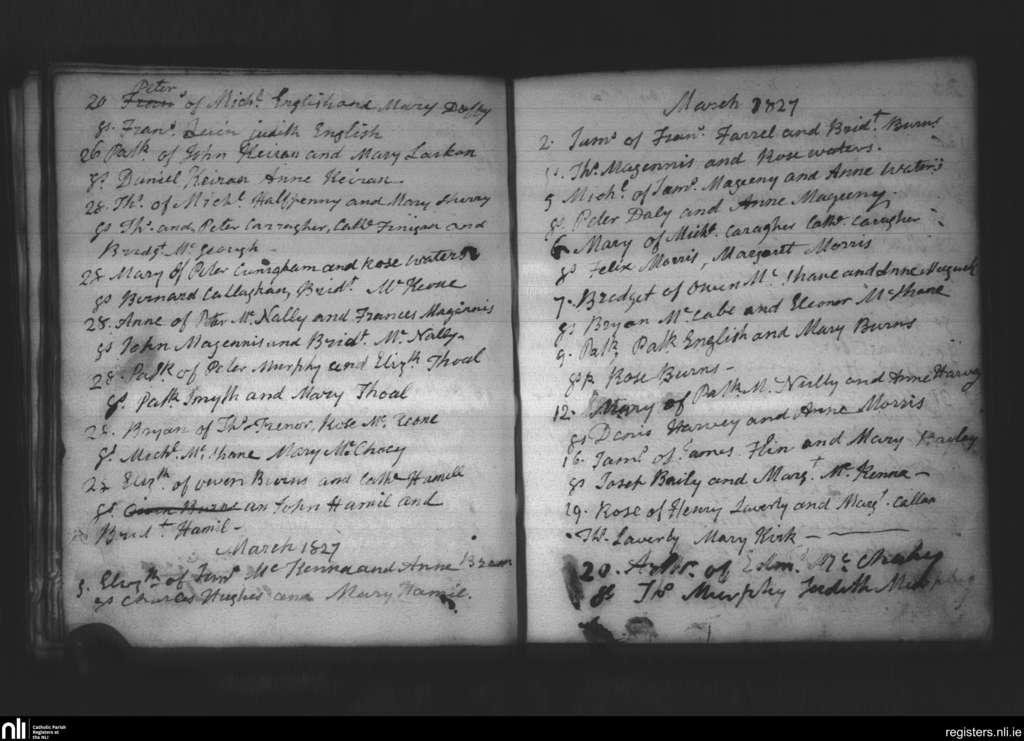 Peter
20 Frans of Michl. English and Mary Duffy
gs. Frans. Levin judith English
26 Patk. of John Keiran and Mary Larkan
gs. Daniel Keiran Anne Keiran
28. Ths. of Michl. Halfpenny and Mary Sherry
gs Ths. and Peter Carragher, Cathe Finigan and
Bridgt. Mc Geough
28. Mary of Peter Cunigham and Rose Waters
gs Bernard Callaghan, Bridt. Mc Keone
28. Anne of Peter Mc Nally and Frances Magennis
gs John Magennis and Bridt. Mc Nally.
28. Patk of Peter Murphy and Elizth Thoal
gs. Patk Smyth and Mary Thoal
28. Bryan of Ths. Trenor, Rose Mc Keone
gs. Michl. Mc Shane Mary Mc Chacy
Elizth. of Owen Burns and Cathe Hamill
gs Owen Burns an John Hamil and
Bridt Hamil-
March 1827
Elizth of Jams Mc Kenna and Anne
gs Charles Hughes and Mary Hamil.
March 1827
2. Jams of Frans. Farrel and Bridt. Burns
gs. Ths. Magennis and Rose waters.
5 Michl. of Jams. Magueny and Anne Waters
gs. Peter Daly and Anne Magueny.
6 Mary of Michl. Caragher Cathe. Caragher
gs Felix Morris, Margaret Morris
7. Bredget of Owen Mc Shane and Anne
gs Bryan Mc Cabe and Eleonor Mc Shane
9. Patk. Patk English and Mary Burns
gsp. Rose Burns-
12. Mary of Patk. Mc. Nally and Anne Harvey
gs Denis Harvey and Anne Morris
16. Jams. of James Flin and Mary Bailey
gs Josep Baily and Margt Mc Kenna-
19. Rose of Henry Laverty and Margt. Callan
Ths. Laverty Mary Kirk -
20. of Edmd. Mc Chahy
gs Ths Murphy Judith Murphy
nli
Catholic Parish
Registers at
the NLI
registers.nli.ie